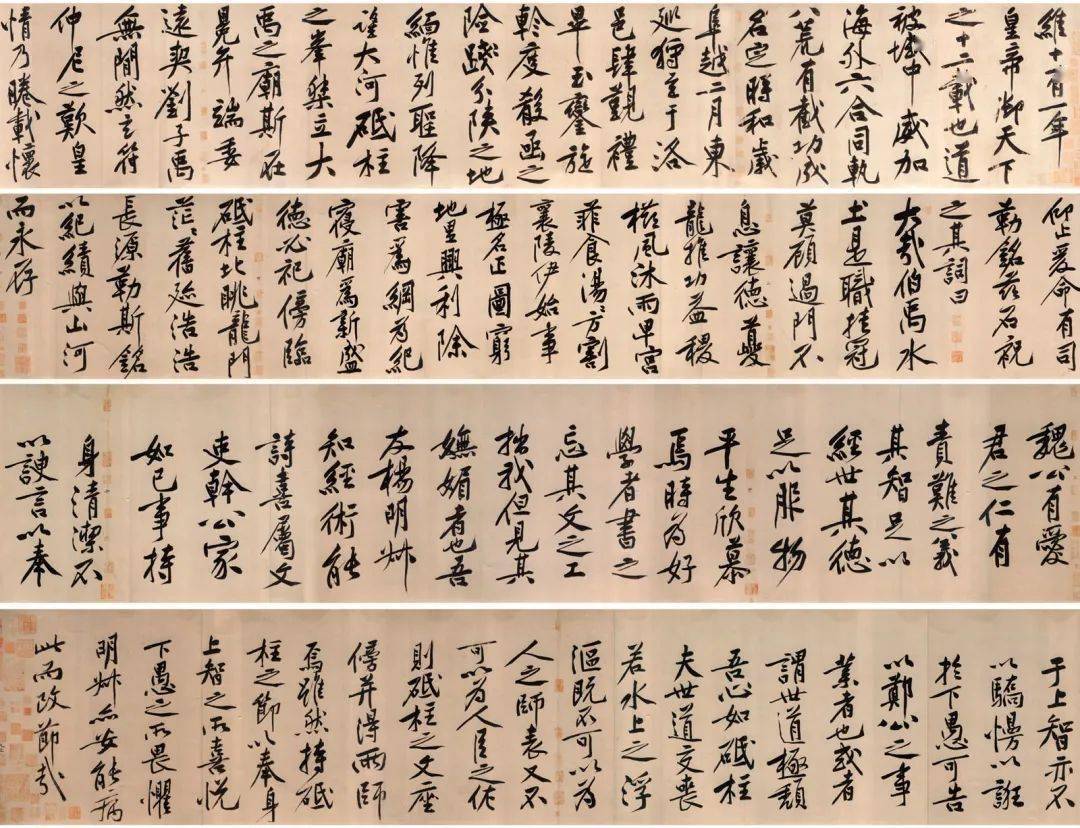 維十有一年
皇帝御天下
之十二載也道
被域中威加
海外六合同軌
八荒有截功成
名定時和歲
阜越二月東
巡狩至于洛
邑肆觀禮
畢玉鑾旋
軫度殽函之
險踐分陝之地
緬惟列聖降
望大河砥柱
之峯桀立大
禹之廟斯在
冕弁端委
遠契劉子禹
無閒然玄符
仲尼之歎皇
情乃睠載懷
仰止爰命有司
勒銘茲石祝
之其詞曰
大哉伯禹水
土是職挂冠
莫顧過門不
息讓德夔
龍推功益稷
櫛風沐雨卑宮
菲食湯〻方割
襄陵伊始事
極名正圖窮
地里興利除
害爲綱爲紀
寑廟爲新盛
德必祀傍臨
砥柱北眺龍門
茫〻舊跡浩浩
長源勒斯銘
以紀績與山河
而永存
魏公有愛
君之仁有
責難之義
其智足以
經世其德
足以服物
平生欣慕
焉時爲好
學者書之
忘其文之工
拙我但見其
嫵媚者也吾
友楊明叔
知經術能
詩喜屬文
吏幹公家
如己事持
身清潔不
以諛言以奉
于上智亦不
以驕慢以誑
於下愚可告
以鄭公之事
業者也或者
謂世道極頹
吾心如砥柱
夫世道交喪
若水上之浮
漚既不可以爲
人之師表又不
可以爲人臣之佐
則砥柱之文座
傍并得兩師
焉雖然持砥
柱之節以奉身
上智之所喜悅
下愚之所畏懼
明叔亦安能病
此而改節哉